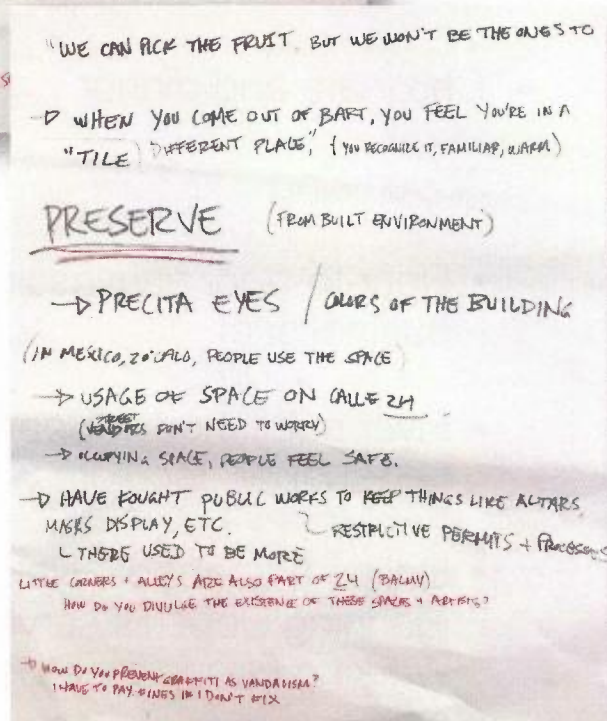 "WE CAN PICK THE FRUIT, BUT WE WON'T BE THE ONES TO
→ WHEN YOU COME OUT OF BART, YOU FEEL YOU'RE IN A
"TILE) DIFFERENT PLACE," (YOU RECOGNIZE IT, FAMILIAR, WARM)
PRESERVE (FROM BUILT ENVIRONMENT)
→ PRECITA EYES / COLORS OF THE BUILDING
(IN MEXICO, ZOCALO, PEOPLE USE THE SPACE)
→ USAGE OF SPACE ON CALLE 24
STREET
(VENDORS DON'T NEED TO WORRY)
→ OCCUPYING SPACE, PEOPLE FEEL SAFE.
→ HAVE FOUGHT PUBLIC WORKS TO KEEP THINGS LIKE ALTARS,
MASKS DISPLAY, ETC.
RESTRICTIVE PERMITS + PROCESSES
THERE USED TO BE MORE
LITTLE CORNERS + ALLEYS ARE ALSO PART OF 24 (BALMY)
HOW DO YOU DIVULGE THE EXISTENCE OF THESE SPACES + ARTISTS?
→ HOW DO YOU PREVENT GRAFFITI AS VANDALISM?
I HAVE TO PAY FINES IF I DON'T FIX